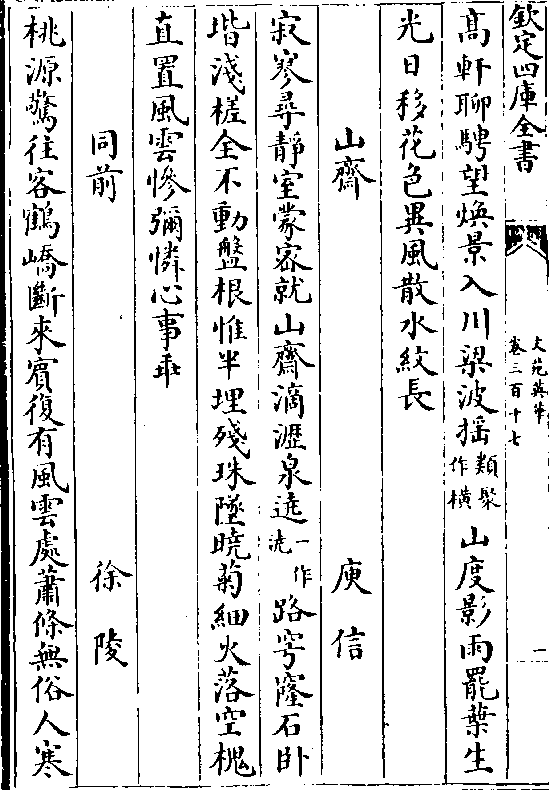 欽定四庫全書
文苑英華
卷三百十七
一
高軒聊騁望煥景入川梁波揺類聚作橫山度影雨罷葉生
光日移花色異風散水紋長
山齋 庾信
寂寥尋静室蒙宻就山齋滴瀝泉遶一作澆路穹窿石卧
堦淺槎全不動盤根惟半埋殘珠墜曉菊細火落空槐
直置風雲慘彌憐心事乖
同前 徐陵
桃源驚往客鶴嶠斷来賓復有風雲處蕭條無俗人寒